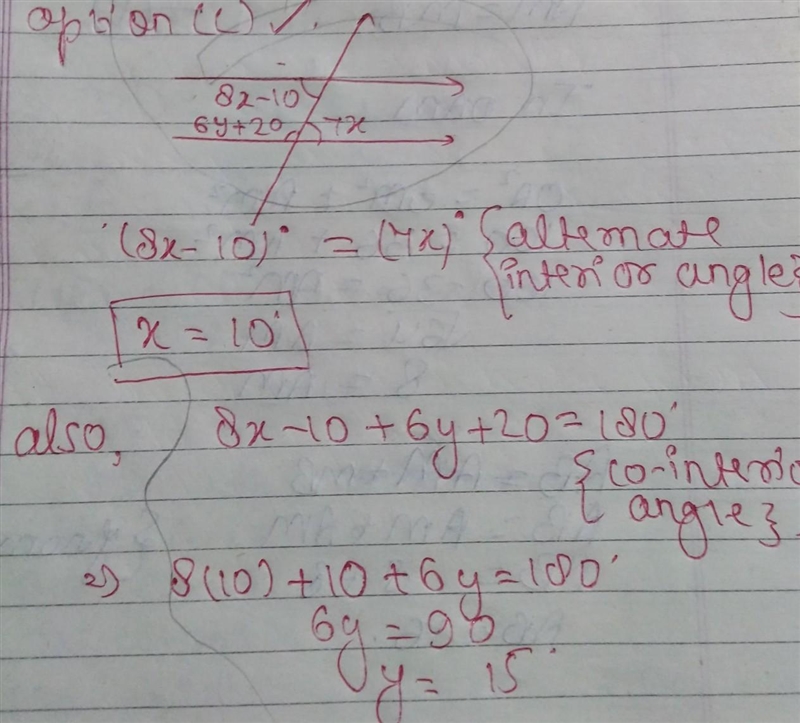 option (c) ✓.
8x-10
6y+20 7x
(8x-10)° = (7x)° {alternate
interior angle}
x = 10°
also, 8x-10+6y+20=180°
{co-interio
angle}
8(10)+10+6y=180°
6y=90
y= 15°